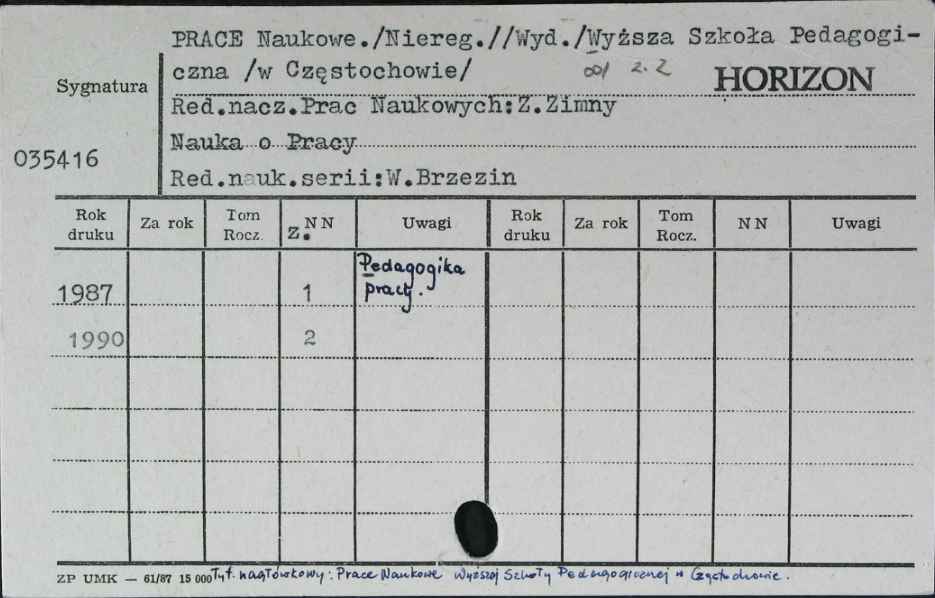 PRACE Naukowe./Niereg.//Wyd./Wyższa Szkoła Pedagogi-
czna /w Częstochowie/ 001 2.2 HORIZON
Sygnatura
Red.nacz.Prac Naukowych:Z.Zimny
Nauka o Pracy
035416
Red.nauk.serii:W.Brzezin
Rok druku Za rok Tom Rocz. Z. NN Uwagi Rok druku Za rok Tom Rocz. NN Uwagi
1987 1 Pedagogika pracy.
1990 2
ZP UMK — 61/87 15 000 Tyt. nagłówkowy: Prace Naukowe Wyższej Szkoły Pedagogicznej w Częstochowie.